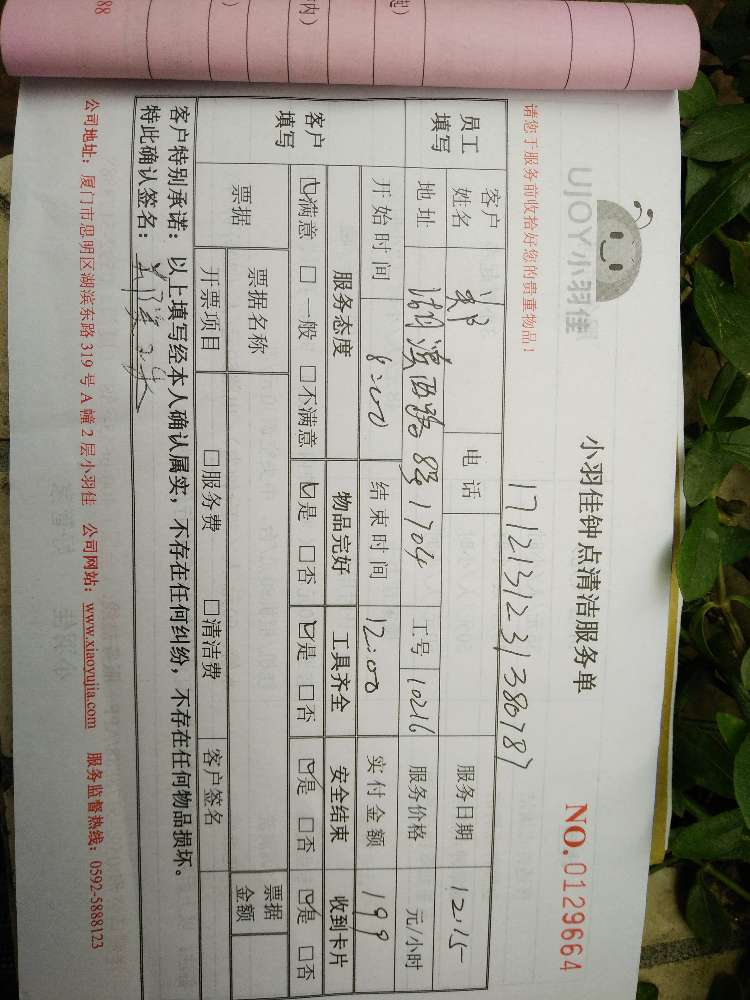 UJOY小羽佳
小羽佳钟点清洁服务单
NO.0129664
请您于服务前收拾好您的贵重物品！
1712131231380787
员工填写 客户姓名 郑 电话 服务日期 12.15
地址 湖滨西路 1704 工号 10216 服务价格 元/小时
开始时间 8:00 结束时间 12:00 实付金额 199
客户填写 服务态度 物品完好 工具齐全 安全结束 收到卡片
☑满意 □一般 □不满意 ☑是 □否 ☑是 □否 ☑是 □否 ☑是 □否
票据 票据名称 票据金额
开票项目 □服务费 □清洁费 客户签名
客户特别承诺：以上填写经本人确认属实，不存在任何纠纷，不存在任何物品损坏。
特此确认签名：
公司地址：厦门市思明区湖滨东路319号A幢2层小羽佳 公司网站：www.xiaoyujia.com 服务监督热线：0592-5888123